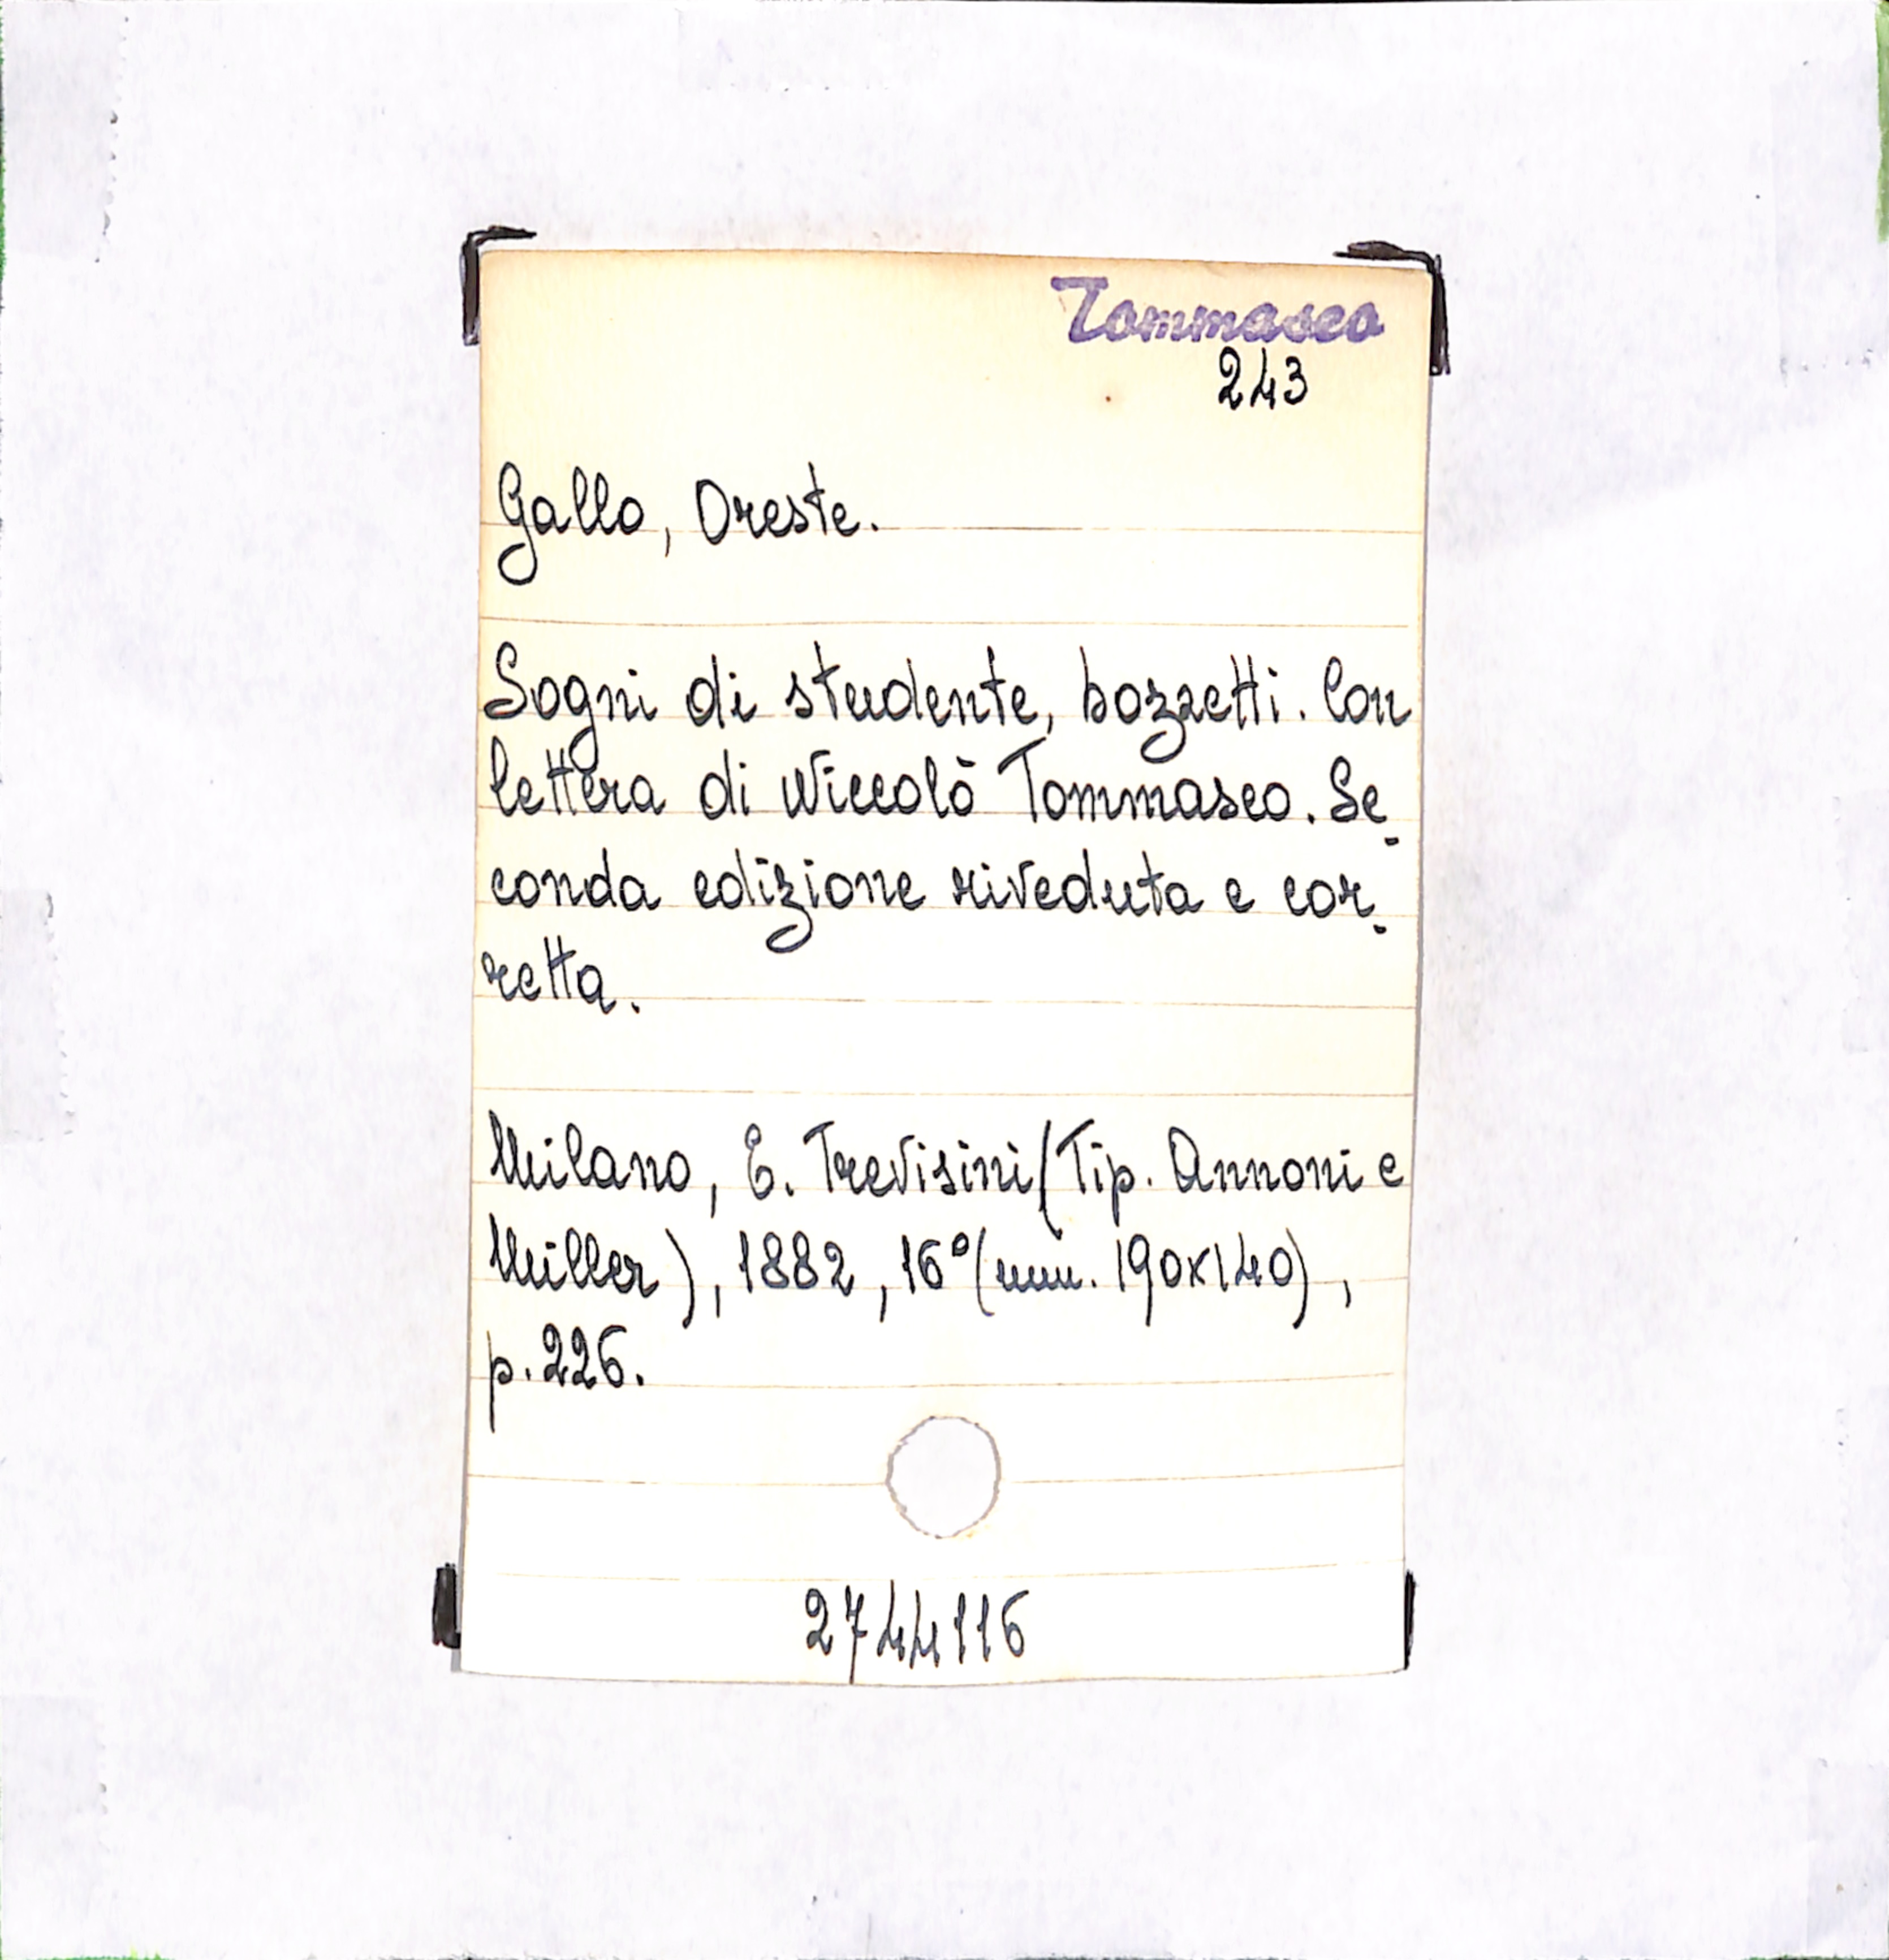 Tommaseo
243
Gallo, Oreste.
Sogni di studente, bozzetti. Con
lettera di Niccolò Tommaseo. Se-
conda edizione riveduta e cor-
retta.
Milano, E. Trevisini (Tip. Annoni e
Müller), 1882, 16° (mm. 190x140),
p. 226.
2744116